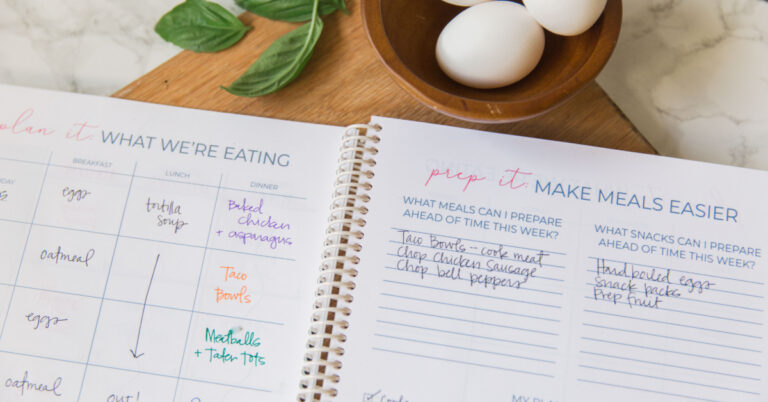 plan it: WHAT WE'RE EATING
BREAKFAST
LUNCH
DINNER
eggs
tortilla
soup
Baked
chicken
+ asparagus
oatmeal
Taco
Bowls
eggs
Meatballs
+ Tater tots
oatmeal
out!
prep it: MAKE MEALS EASIER
WHAT MEALS CAN I PREPARE
AHEAD OF TIME THIS WEEK?
Taco Bowls - cook meat
Chop Chicken Sausage
Chop bell peppers
WHAT SNACKS CAN I PREPARE
AHEAD OF TIME THIS WEEK?
Hardboiled eggs
Snack packs
Prep fruit
MY PLAN